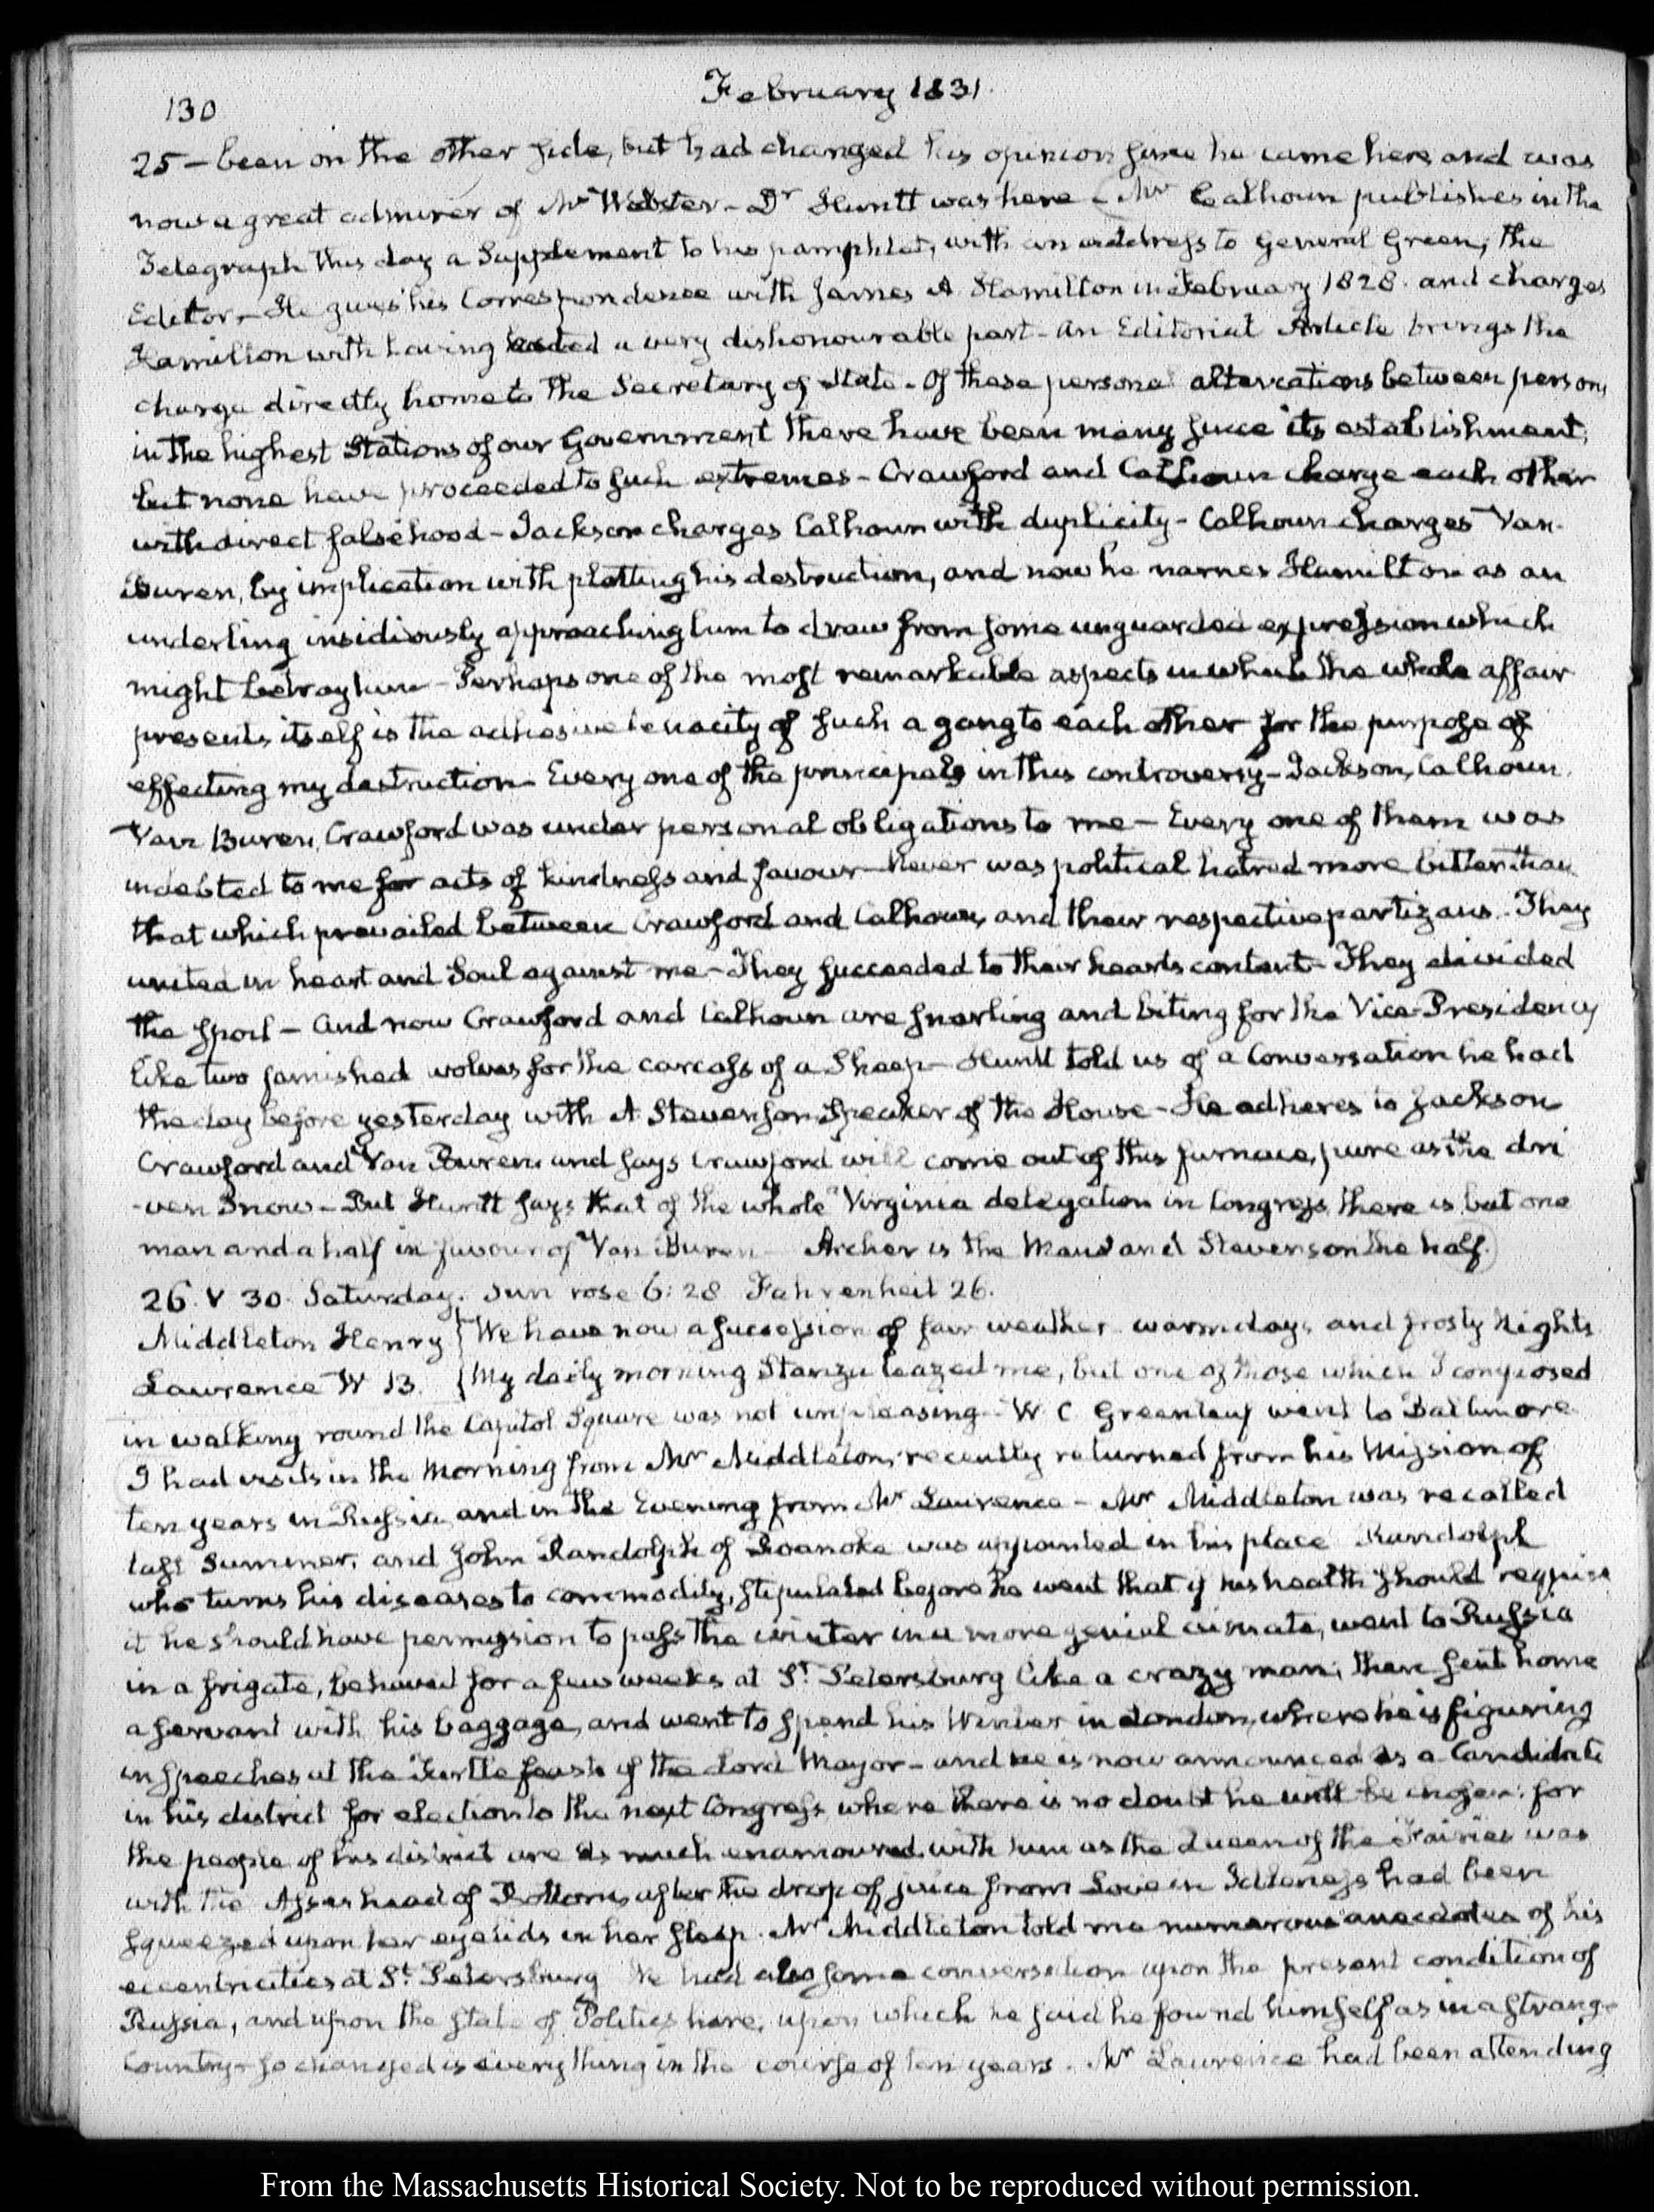 130
February 1831.
25 – been on the other side, but had changed his opinion since he came here and was
now a great admirer of Mr Webster – Dr Huntt was here – (Mr Calhoun publishes in the
Telegraph this day a Supplement to his pamphlet, with an address to General Green, the
Editor, – He gives his Correspondence with James A Hamilton in February 1828. and charges
Hamilton with having acted a very dishonourable part – An Editorial Article brings the
charge directly home to the Secretary of State – Of these personal altercations between persons
in the highest Stations of our Government there have been many since its establishment;
but none have proceeded to such extremes – Crawford and Calhoun charge each other
with direct falsehood – Jackson charges Calhoun with duplicity – Calhoun charges Van
Buren, by implication with plotting his destruction, and now he names Hamilton as an
underling insidiously approaching him to draw from some unguarded expression which
might betray him – Perhaps one of the most remarkable aspects in which the whole affair
presents itself is the adhesive tenacity of such a gang to each other for the purpose of
effecting my destruction – Every one of the principals in this controversy – Jackson, Calhoun,
Van Buren, Crawford was under personal obligations to me – Every one of them was
indebted to me for acts of kindness and favour – Never was political hatred more bitter than
that which prevailed between Crawford and Calhoun, and their respective partizans. They
united in heart and Soul against me – They succeeded to their hearts content – They divided
the spoil – And now Crawford and Calhoun are snarling and biting for the Vice-Presidency
like two famished wolves for the carcass of a Sheep – Huntt told us of a Conversation he had
the day before yesterday with A Stevenson Speaker of the House – He adheres to Jackson
Crawford and Van Buren and says Crawford will come out of this furnace, pure as the dri
-ven Snow – But Huntt says that of the whole Virginia delegation in Congress, there is but one
man and a half in favour of Van Buren – Archer is the Man and Stevenson the half.)
26. V 30. Saturday. Sun rose 6:28 Fahrenheit 26.
Middleton Henry { We have now a succession of fair weather warm days and frosty Nights
Lawrence W B. { My daily morning Stanza teazed me, but one of those which I composed
in walking round the Capitol Square was not unpleasing – W. C. Greenleaf went to Baltimore
I had visits in the Morning from Mr Middleton, recently returned from his Mission of
ten years in Russia, and in the Evening from Mr Lawrence – Mr Middleton was recalled
last Summer, and John Randolph of Roanoke was appointed in his place Randolph
who turns his diseases to commodity, stipulated before he went that if his health should require
it he should have permission to pass the winter in a more genial climate, went to Russia
in a frigate, behaved for a few weeks at St. Petersburg like a crazy man; then sent home
a servant with his baggage, and went to spend his Winter in London, where he is figuring
in speeches at the Turtle feasts of the Lord Mayor – and he is now announced as a Candidate
in his district for election to the next Congress where there is no doubt he will be chosen: for
the people of his district are as much enamoured with him as the Queen of the Fairies was
with the Asses head of Bottom, after the drop of juice from Love in Idleness had been
squeezed upon her eyelids in her sleep. Mr Middleton told me numerous anecdotes of his
eccentricities at St. Petersburg We had also some conversation upon the present condition of
Russia, and upon the state of Politics here, upon which he said he found himself as in a strange
Country – so changed is every thing in the course of ten years. Mr Lawrence had been attending
From the Massachusetts Historical Society. Not to be reproduced without permission.